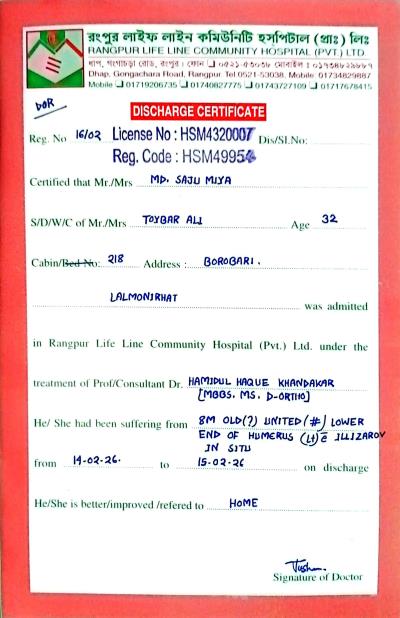 রংপুর লাইফ লাইন কমিউনিটি হসপিটাল (প্রাঃ) লিঃ
RANGPUR LIFE LINE COMMUNITY HOSPITAL (PVT.) LTD.
ধাপ, গংগাচড়া রোড, রংপুর। ফোন ০৫২১-৫৩০৩৮ মোবাইল : ০১৭৩৪৮২৯৮৮৭
Dhap, Gongachara Road, Rangpur. Tel.0521-53038. Mobile: 01734829887
Mobile 01719206735 01740827775 01743727109 01717678415
DOR
DISCHARGE CERTIFICATE
Reg. No 16/02 License No : HSM4320007 Dis/Sl.No:
Reg. Code : HSM49954
Certified that Mr./Mrs MD. SAJU MIYA
S/D/W/C of Mr./Mrs TOYBAR ALI Age 32
Cabin/Bed No: 218 Address : BOROBARI.
LALMONIRHAT was admitted
in Rangpur Life Line Community Hospital (Pvt.) Ltd. under the
treatment of Prof/Consultant Dr. HAMIDUL HAQUE KHANDAKAR
[MBBS. MS. D-ORTHO]
He/ She had been suffering from 8M OLD(?) UNITED (#) LOWER
END OF HUMERUS (Lt) c̄ ILLIZAROV
IN SITU
from 14-02-26. to 15-02-26 on discharge
He/She is better/improved /refered to HOME
Signature of Doctor